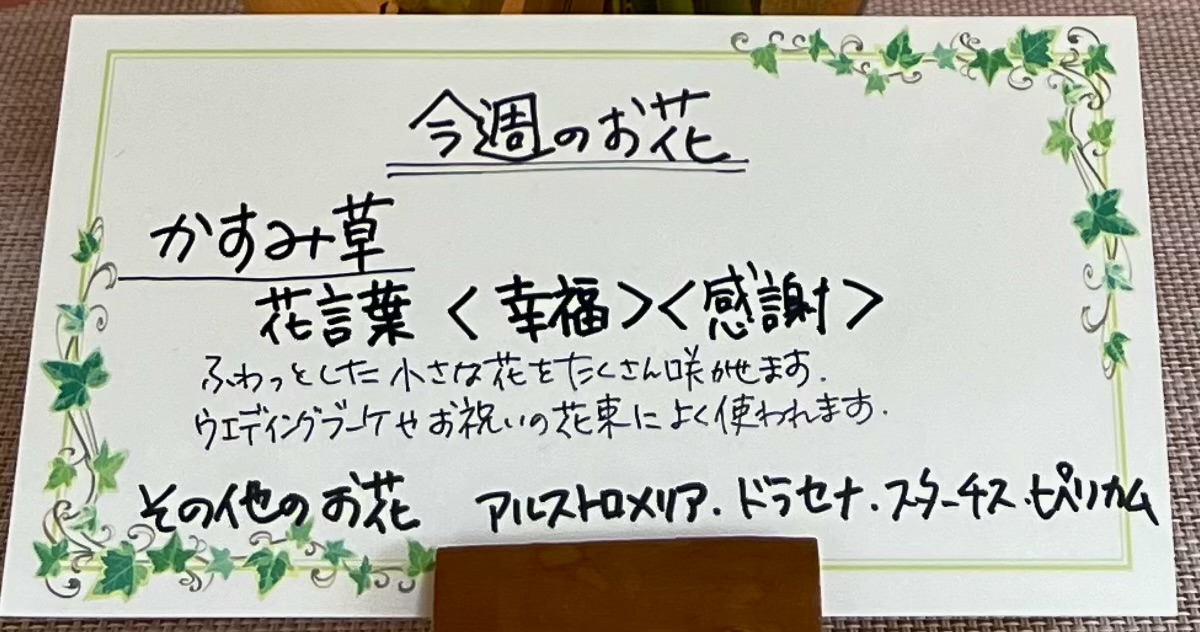 今週のお花
かすみ草
花言葉 <幸福><感謝>
ふわっとした小さな花をたくさん咲かせます.
ウエディングブーケやお祝いの花束によく使われます.
その他のお花 アルストロメリア.ドラセナ.スターチス.ヒペリカム